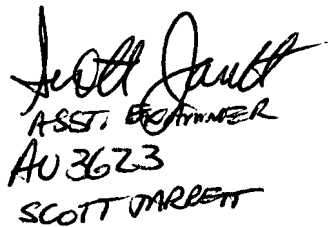 Scott Jarrett
ASST. EXAMINER
AU 3623
SCOTT JARRETT